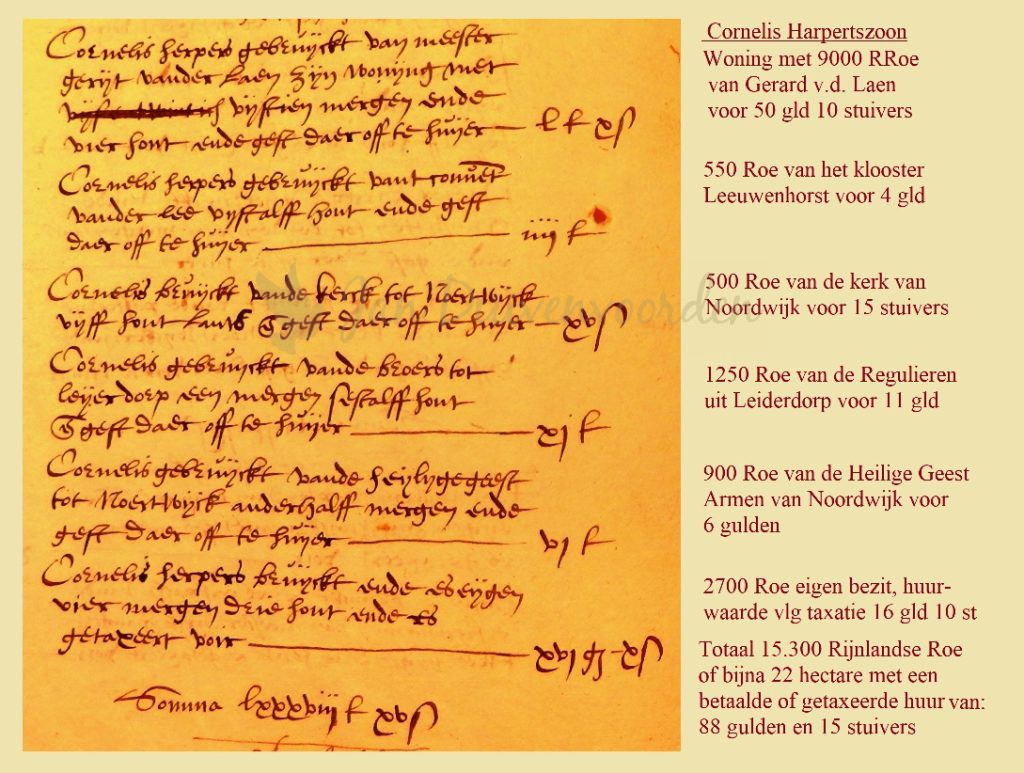 Cornelis herpers gebruyckt van meester
geryt vander laen zyn wonyng met
vyftien mergen ende
vier hont ende geft daer off te huyer l £ x s
Cornelis herpers gebruyckt vant convent
vander lee vyftalff hont ende geft
daer off te huyer iiij £
Cornelis bruyckt vande kerck tot Noertwyck
vyff hont lants geft daer off te huyer xv s
Cornelis gebruyckt vande broers tot
leyerdorp een mergen sestalff hont
geft daer off te huyer xj £
Cornelis gebruyckt vande heylygegeest
tot Noertwyck anderhalff mergen ende
geft daer off te huyer vj £
Cornelis herpers bruyckt ende es eygen
vier mergen drie hont ende es
getaxeert voir xvj g x s
Somma lxxxviij £ xv s
Cornelis Harpertszoon
Woning met 9000 RRoe
van Gerard v.d. Laen
voor 50 gld 10 stuivers
550 Roe van het klooster
Leeuwenhorst voor 4 gld
500 Roe van de kerk van
Noordwijk voor 15 stuivers
1250 Roe van de Regulieren
uit Leiderdorp voor 11 gld
900 Roe van de Heilige Geest
Armen van Noordwijk voor
6 gulden
2700 Roe eigen bezit, huur-
waarde vlg taxatie 16 gld 10 st
Totaal 15.300 Rijnlandse Roe
of bijna 22 hectare met een
betaalde of getaxeerde huur van:
88 gulden en 15 stuivers